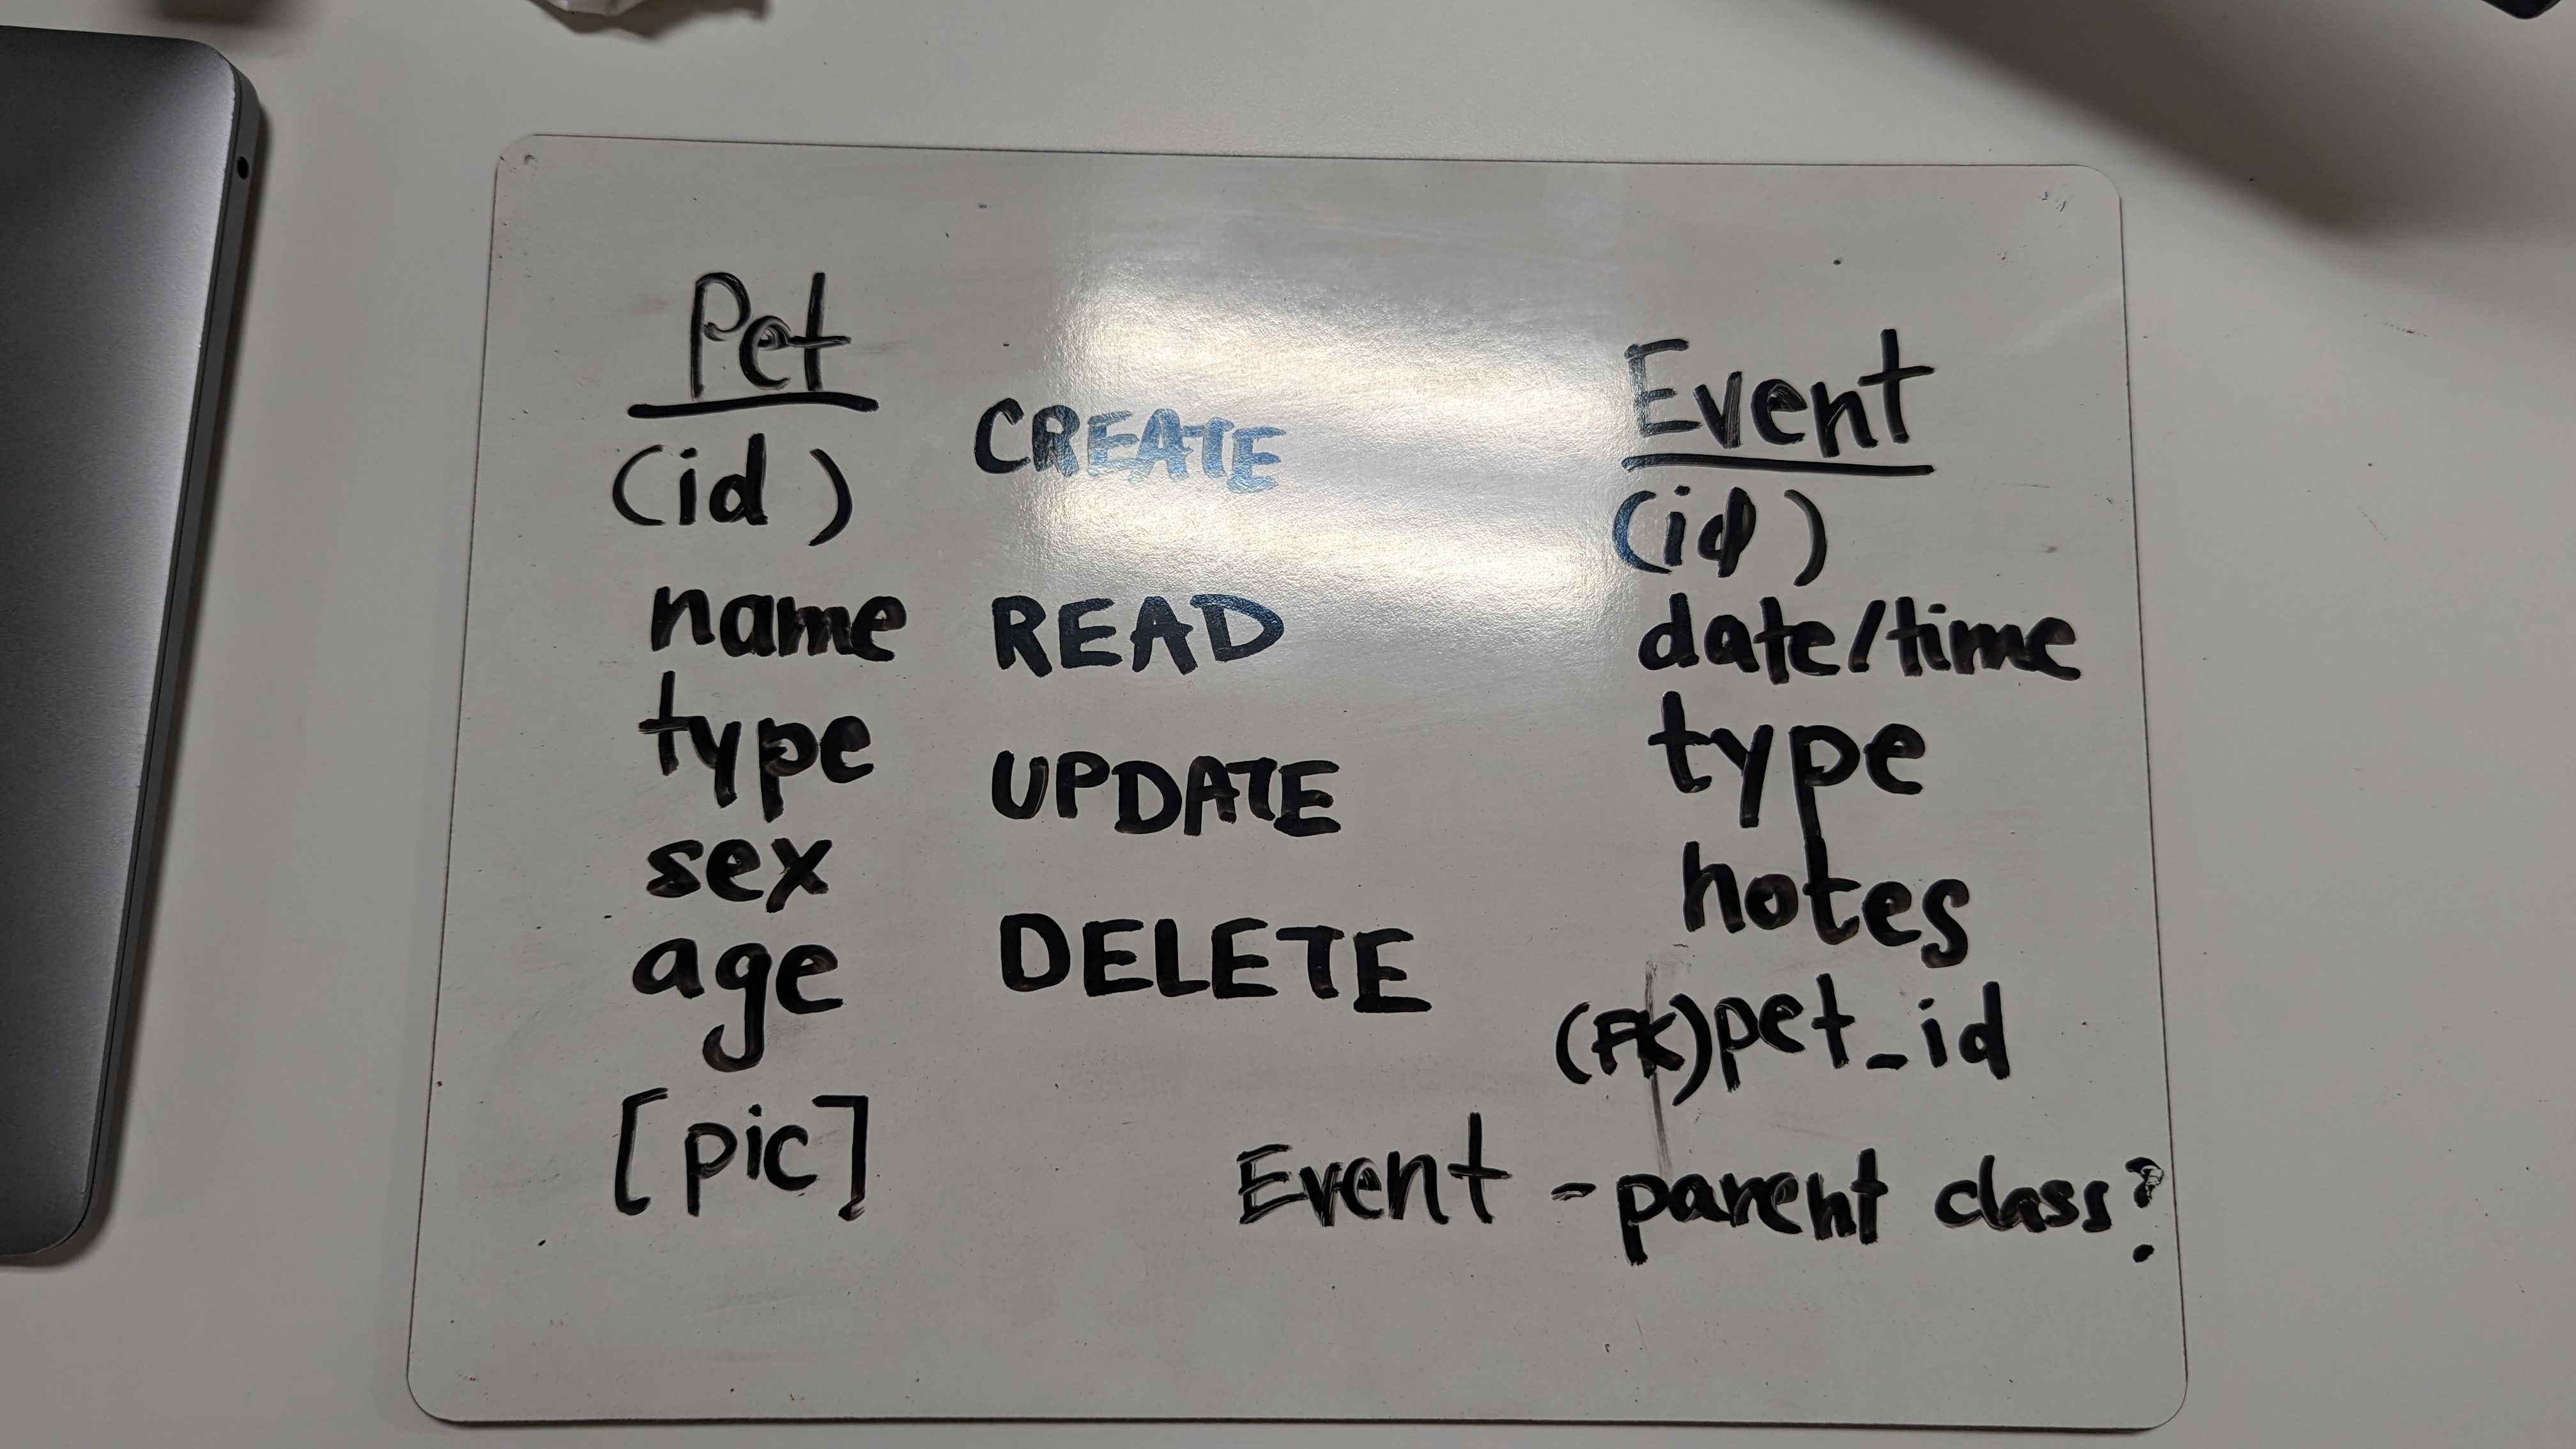 Pet
(id)
name
type
sex
age
[pic]
CREATE
READ
UPDATE
DELETE
Event
(id)
date/time
type
notes
(FK) pet_id
Event - parent class?